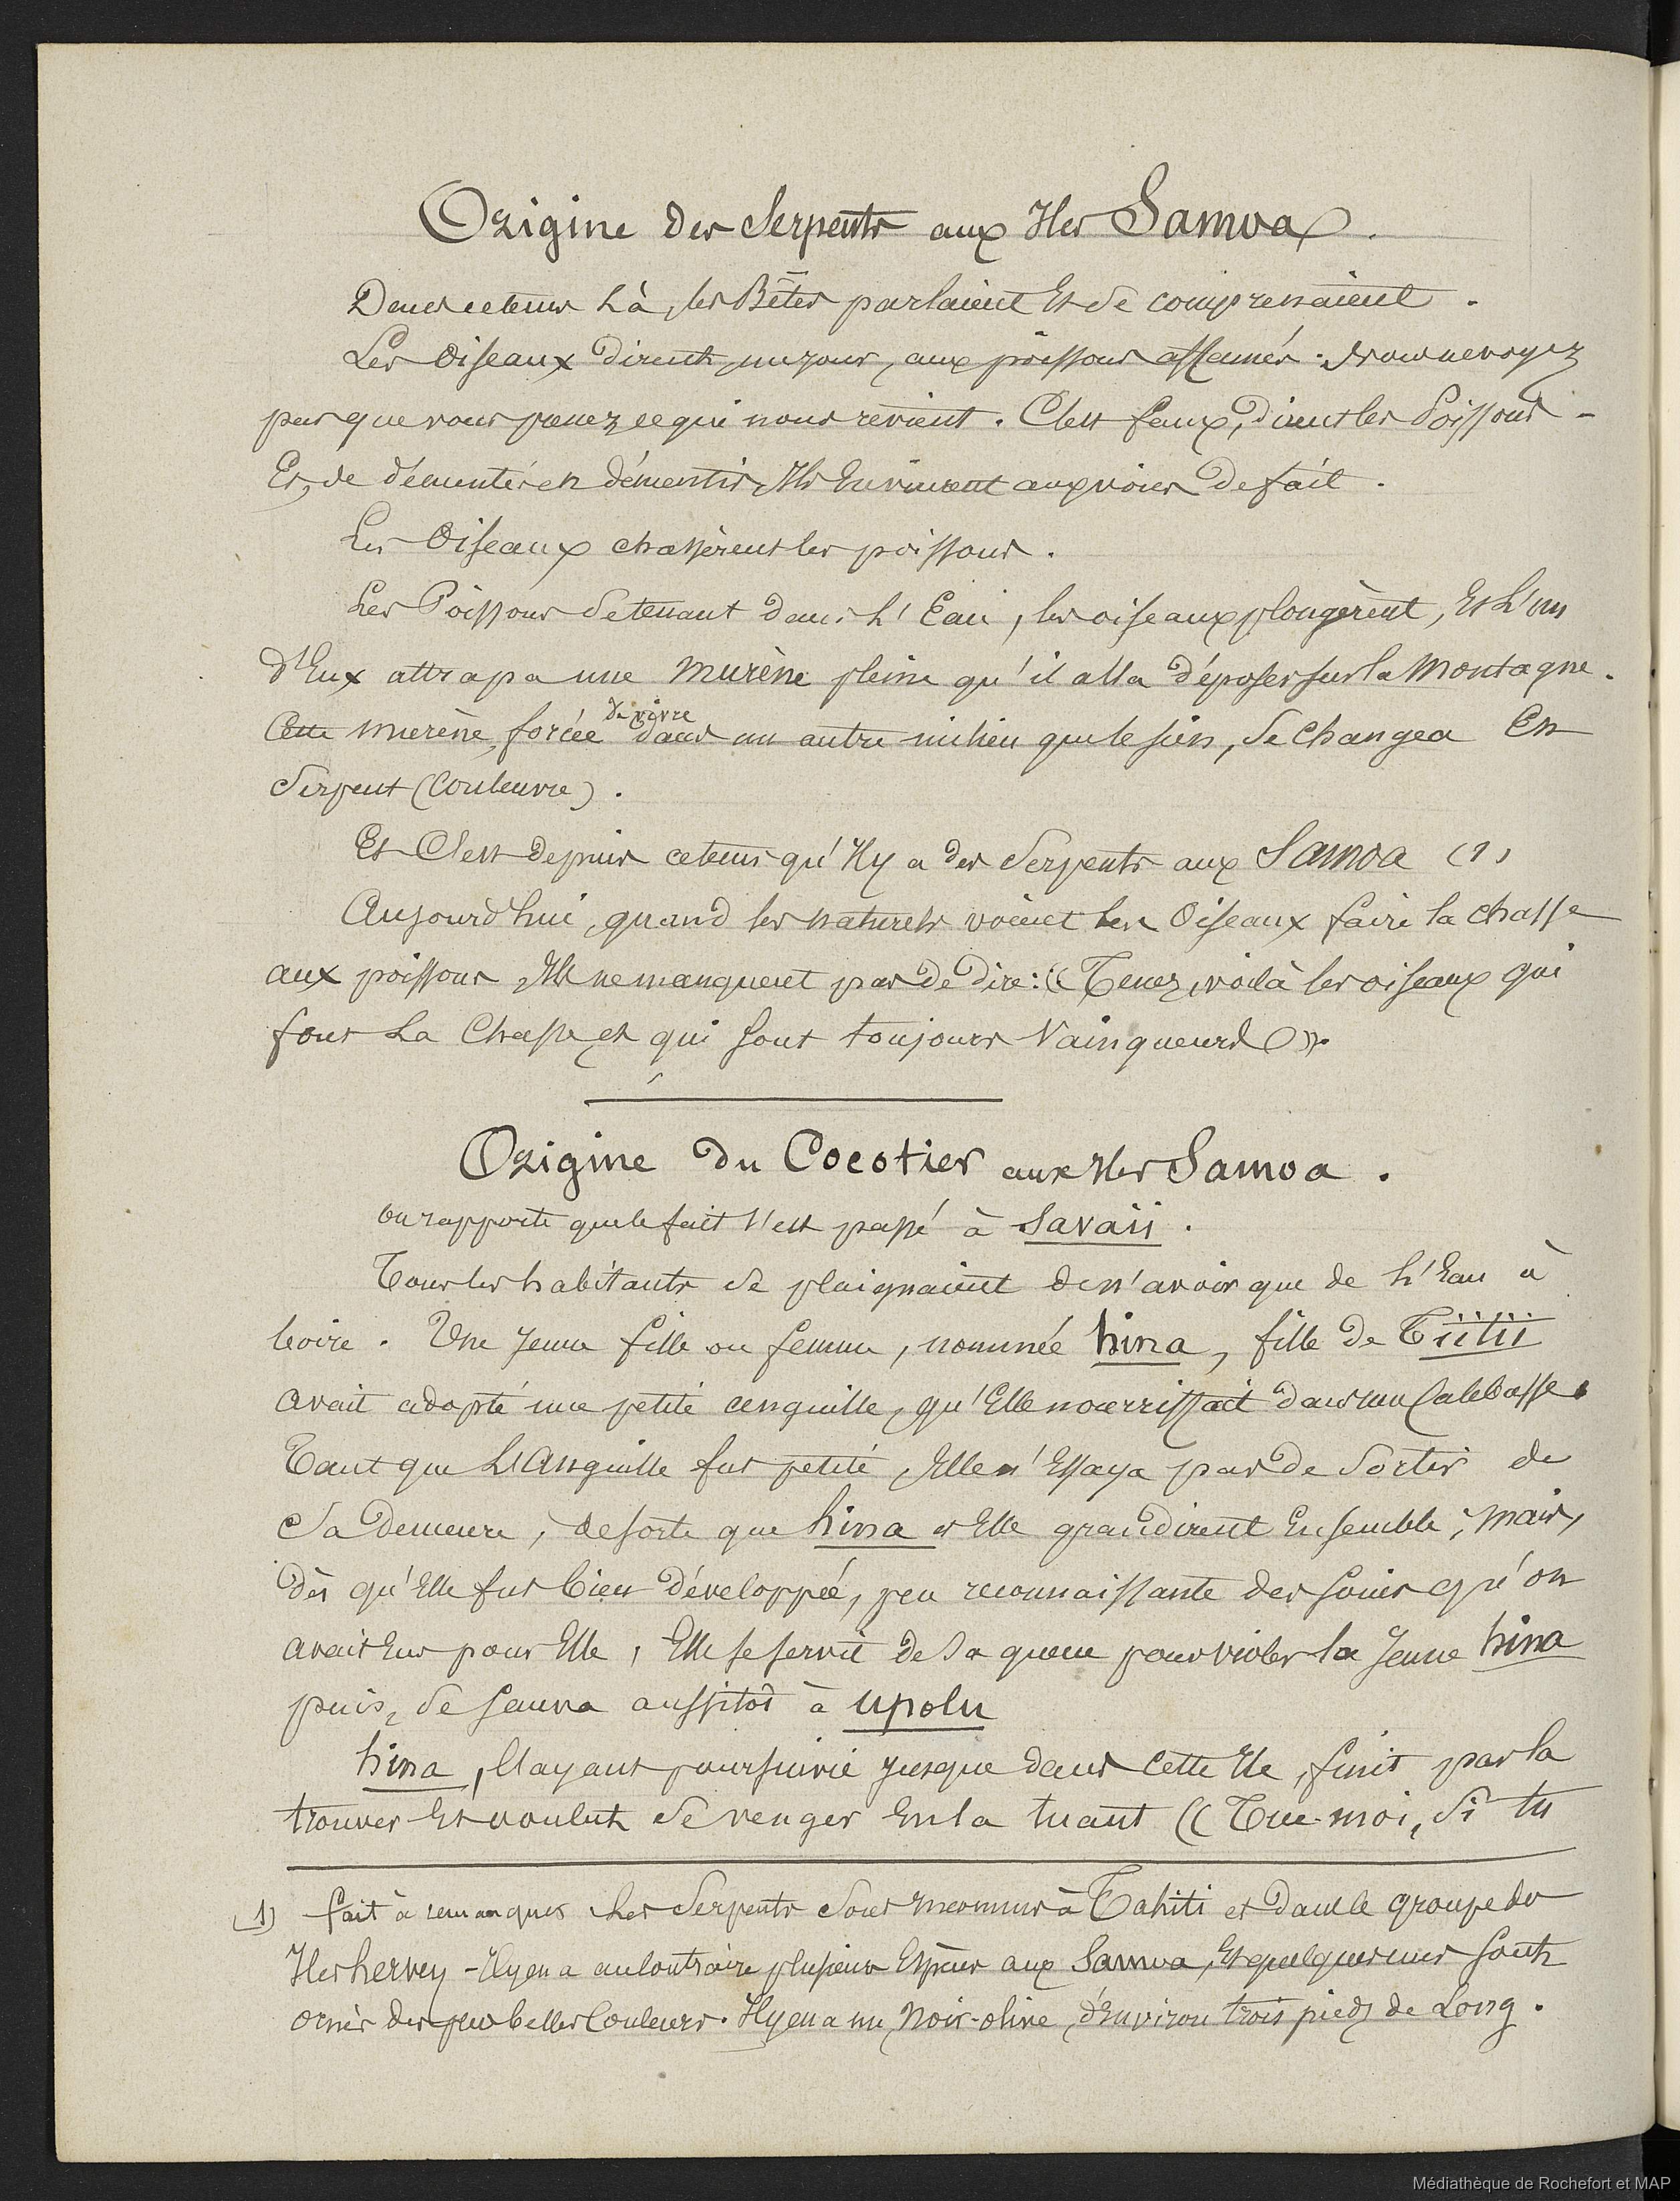 Origine des Serpents aux Iles Samoa.
Dans ce tems là, les Bêtes parlaient Et se comprenaient.
Les Oiseaux dirent, un jour, aux poissons affamés: Vous ne voyez
pas que vous prenez ce qui nous revient. C'est faux, dirent les Poissons -
Et, de démentis en démentis Ils En vinrent aux voies de fait.
Les Oiseaux chassèrent les poissons.
Les Poissons se tenant dans l'Eau, les oiseaux plongèrent, Et l'un
d'Eux attrapa une Murène pleine qu'il alla déposer sur la Montagne.
Cette murène, forcée de vivre dans un autre milieu que le sien, se changea En
Serpent (Couleuvre).
Et C'est depuis ce tems qu'Il y a des Serpents aux Samoa (1)
Aujourd'hui, quand les naturels voient les Oiseaux faire la chasse
aux poissons, Ils ne manquent pas de dire: « Tenez, voilà les oiseaux qui
font la Chasse et qui sont toujours Vainqueurs ».
Origine du Cocotier aux Iles Samoa.
On rapporte que le fait s'est passé à Savaii.
Tous les habitants se plaignaient de n'avoir que de l'Eau à
boire. Une jeune fille ou femme, nommée hina, fille de Tiitii
avait adopté une petite anguille, qu'Elle nourrissait dans une Calebasse.
Tant que L'Anguille fut petite, Elle n'Essaya pas de Sortir de
Sa Demeure, de sorte que hina et Elle grandirent Ensemble; mais,
dès qu'Elle fut bien développée, peu reconnaissante des soins qu'on
avait Eus pour Elle, Elle se servit de Sa queue pour violer la jeune hina
puis, se sauva aussitôt à Upolu
hina, l'ayant poursuivie jusque dans cette Ile, finit par la
trouver Et voulut se venger En la tuant « Tue-moi, si tu
(1) fait à remarquer les Serpents sont inconnus à Tahiti et dans le groupe des
Iles hervey - Il y en a au Contraire plusieurs Espèces aux Samoa, Et quelques unes sont
ornées des plus belles Couleurs. Il y en a un, Noir-olive, d'Environ trois pieds de Long.
Médiathèque de Rochefort et MAP